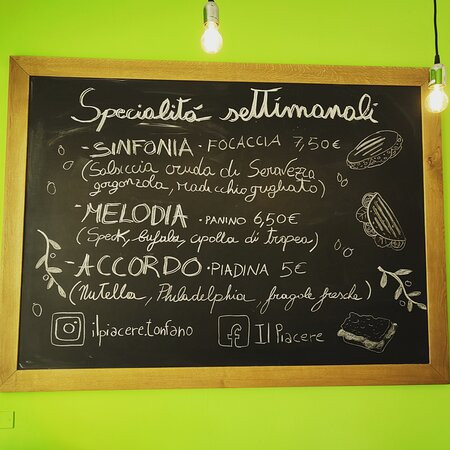 Specialitá settimanali
- SINFONIA · FOCACCIA 7,50€
(Salsiccia cruda di Seravezza
gorgonzola, radicchio grigliato)
- MELODIA · PANINO 6,50€
(Speck, bufala, cipolla di tropea)
- ACCORDO · PIADINA 5€
(Nutella, Philadelphia, fragole fresche)
ilpiacere.tonfano f Il Piacere